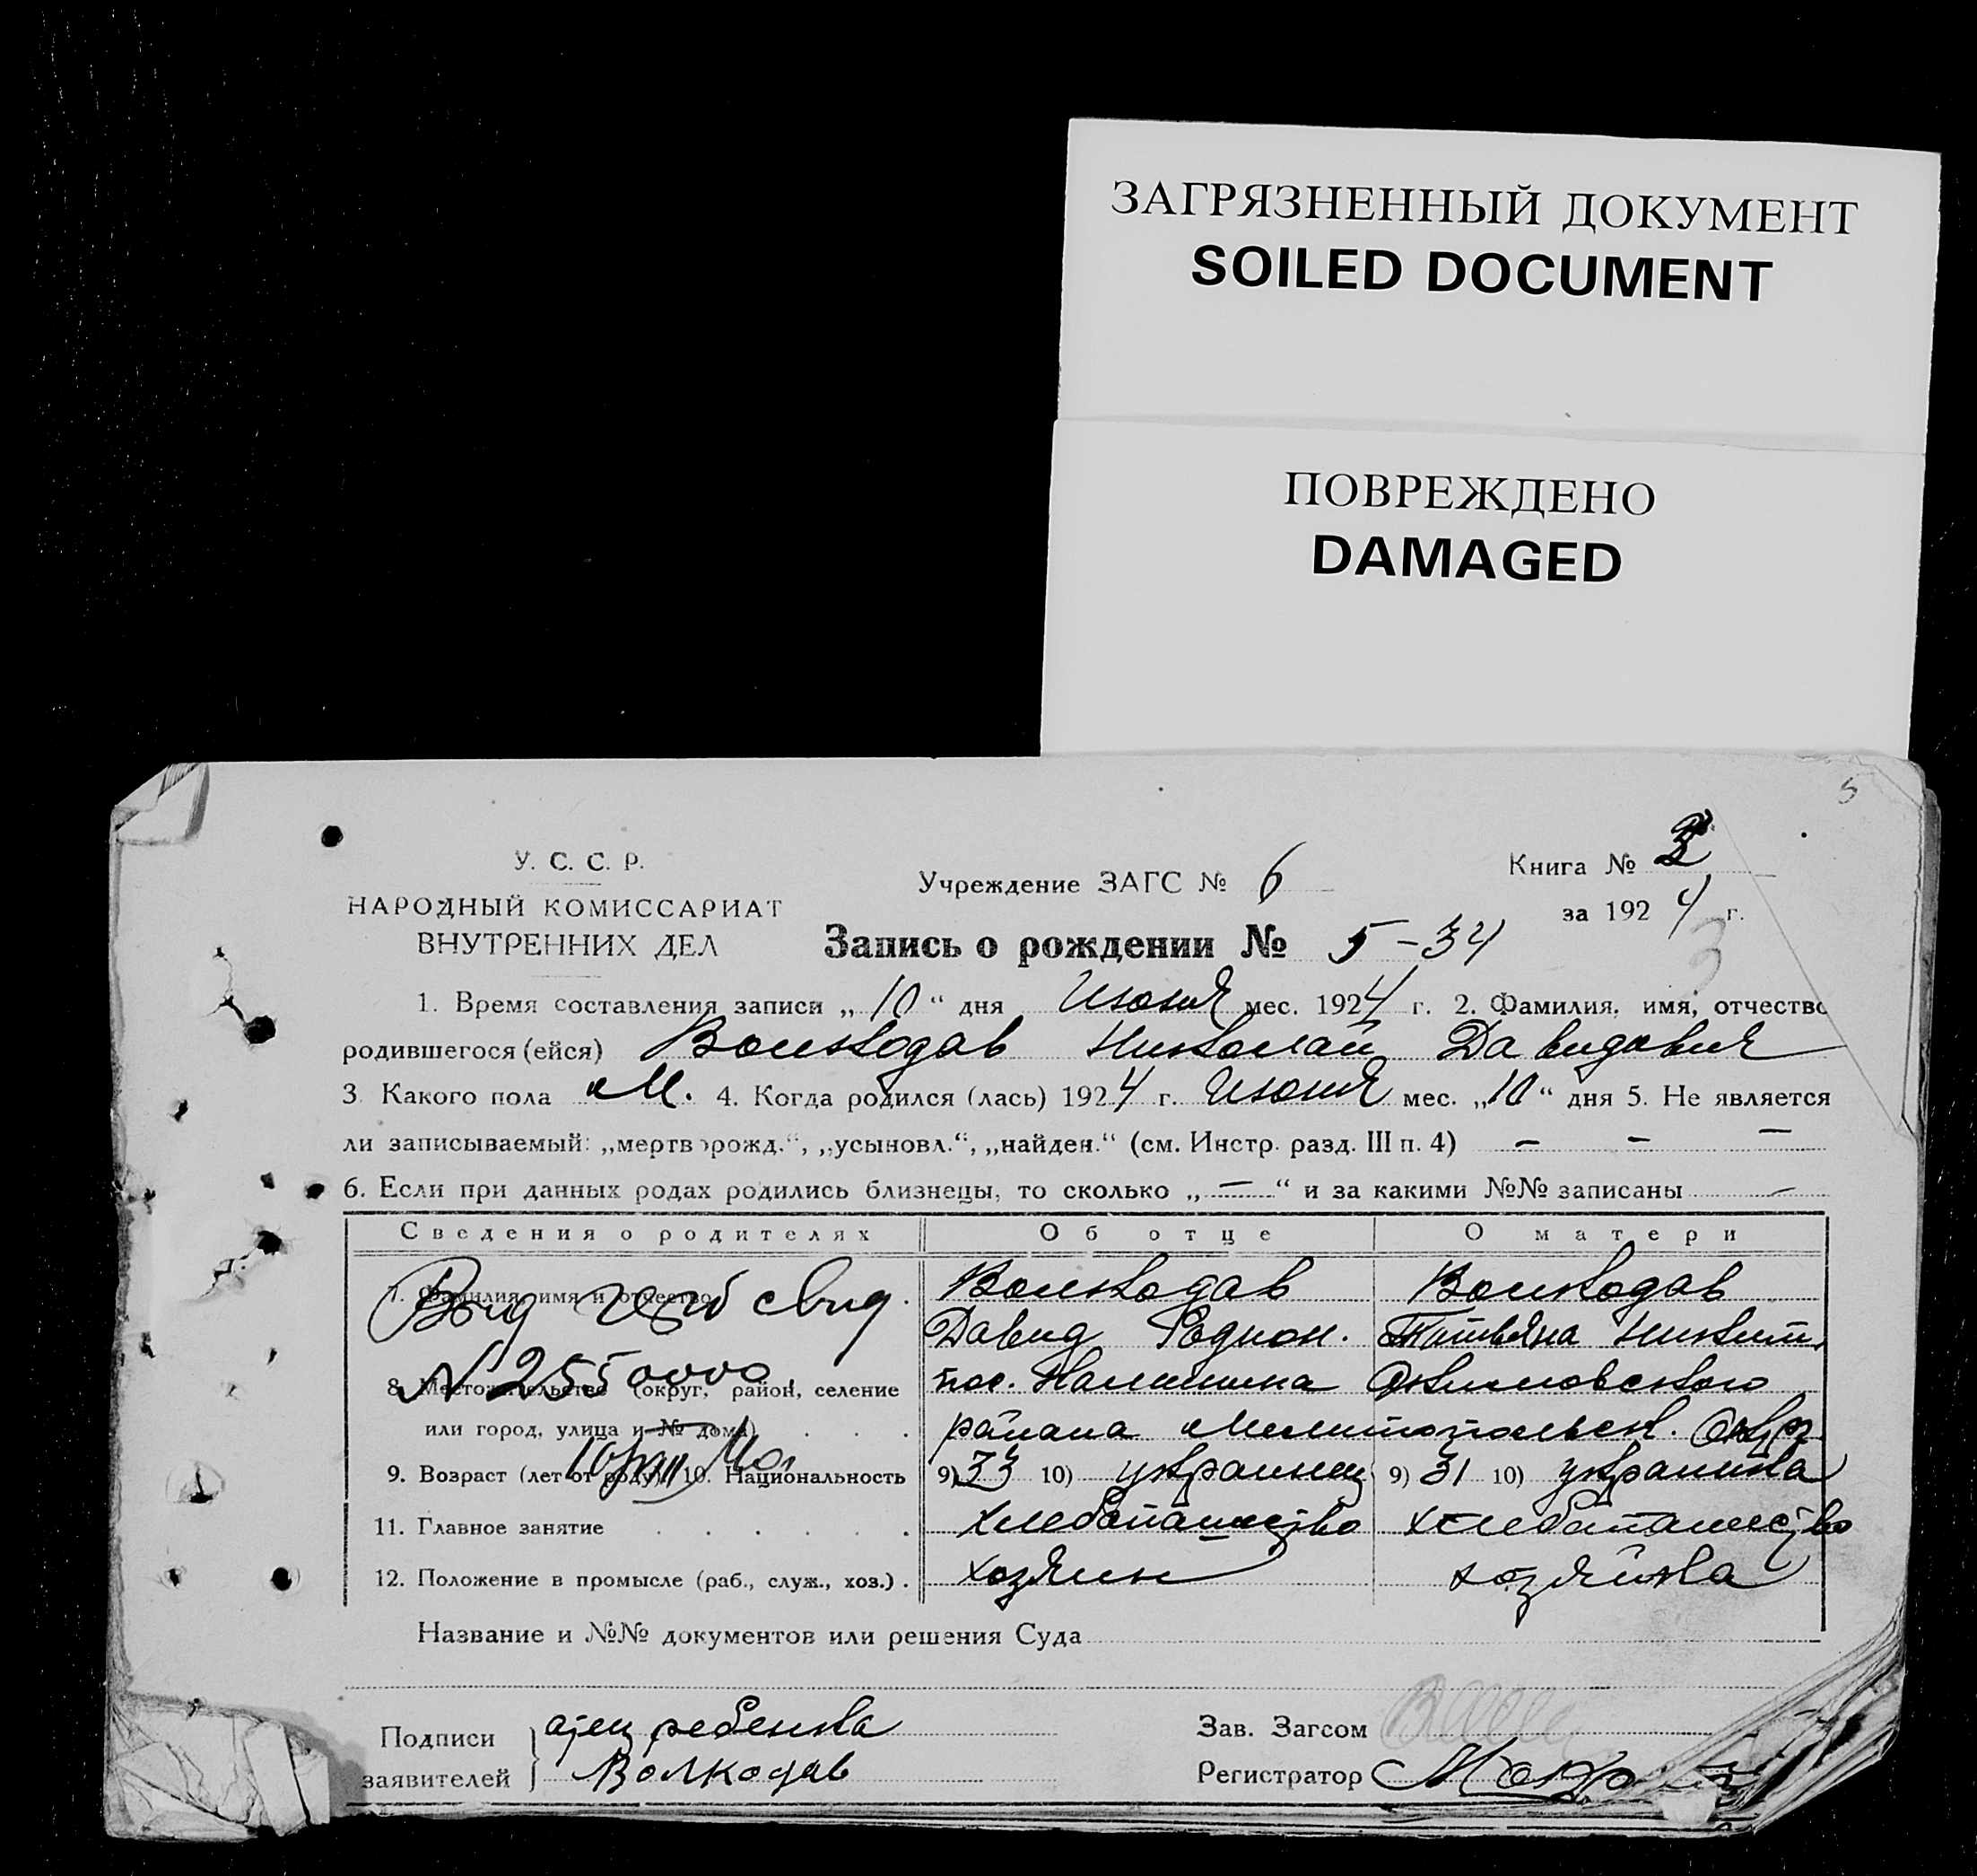 ЗАГРЯЗНЕННЫЙ ДОКУМЕНТ
SOILED DOCUMENT
ПОВРЕЖДЕНО
DAMAGED
5
У. С. С. Р.
НАРОДНЫЙ КОМИССАРИАТ
ВНУТРЕННИХ ДЕЛ
Учреждение ЗАГС № 6
Книга № 3
за 1924 г.
3
Запись о рождении № 5-34
1. Время составления записи „10“ дня Июня мес. 1924 г. 2. Фамилия, имя, отчество
родившегося (ейся) Волкодав Николай Давидович
3. Какого пола М. 4. Когда родился (лась) 1924 г. Июня мес. „10“ дня 5. Не является
ли записываемый: „мертворожд.“, „усыновл.“, „найден.“ (см. Инстр. разд. III п. 4) – – –
6. Если при данных родах родились близнецы, то сколько „–“ и за какими №№ записаны –
Сведения о родителях Об отце О матери
7. Фамилия, имя и отчество . Волкодав Волкодав
Давид Родион. Татьяна Никит.
Выд свид.
N 255
8. Местожительство (округ, район, селение пос. Калинина Акимовского
или город, улица и № дома) . . . района Мелитопольск. Окр
9. Возраст (лет от роду) 10. Национальность 9) 33 10) украинец 9) 31 10) украинка
11. Главное занятие . . . . . . хлебопашество хлебопашество
12. Положение в промысле (раб., служ., хоз.) . хозяин хозяйка
Название и №№ документов или решения Суда
Подписи заявителей } отец ребенка
Волкодав
Зав. Загсом
Регистратор